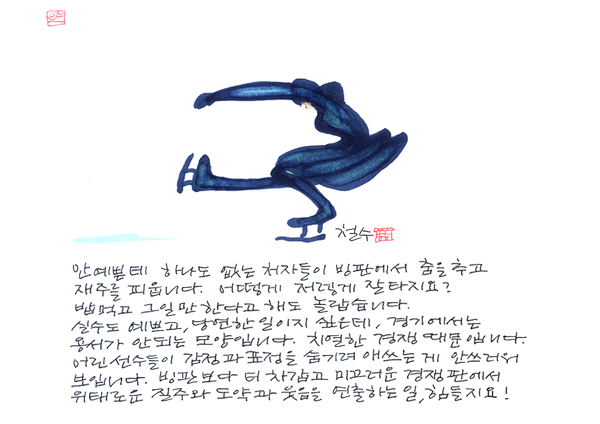 철수
안예쁜데 하나도 없는 처자들이 빙판에서 춤을 추고
재주를 피웁니다. 어떻게 저렇게 잘 타지요?
밥먹고 그일만 한다고 해도 놀랍습니다.
실수도 예쁘고, 당연한 일이지 싶은데, 경기에서는
용서가 안되는 모양입니다. 치열한 경쟁 때문입니다.
어린 선수들이 감정과 표정을 숨기려 애쓰는 게 안쓰러워
보입니다. 빙판보다 더 차갑고 미끄러운 경쟁판에서
위태로운 질주와 도약과 웃음을 연출하는 일, 힘들지요!